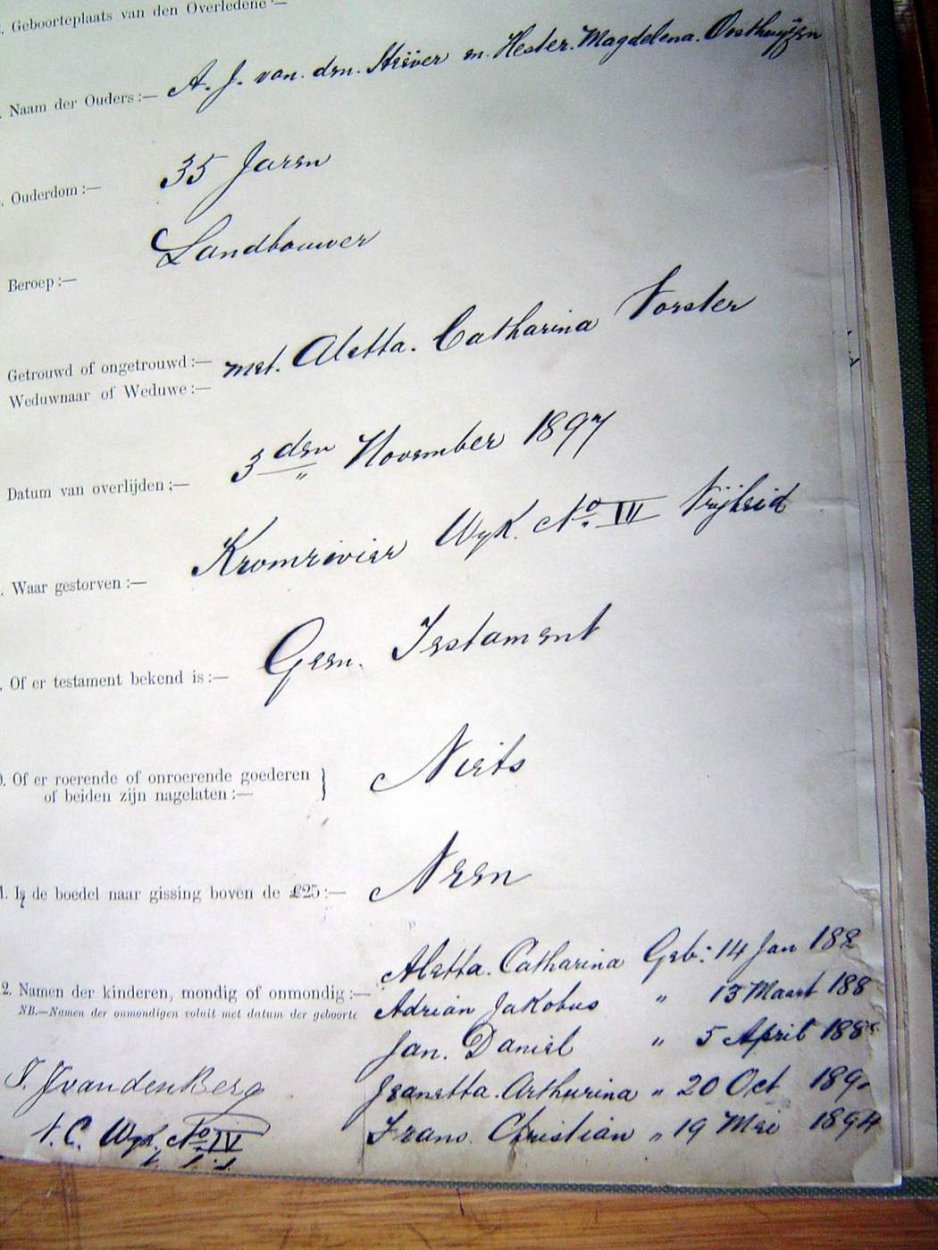 . Geboorteplaats van den Overledene :—
. Naam der Ouders :— A. J. van. den. Heever en. Hester. Magdelena. Oosthuijzen
. Ouderdom :— 35 Jaren
Beroep :— Landbouwer
Getrouwd of ongetrouwd :— met. Aletta. Catharina Vorster
Weduwnaar of Weduwe :—
Datum van overlijden :— 3den November 1897
. Waar gestorven :— Kromrivier Wyk. No IV Vrijheid
. Of er testament bekend is :— Geen. Testament
0. Of er roerende of onroerende goederen } Niets
of beiden zijn nagelaten :—
1. Is de boedel naar gissing boven de £25 :— Neen
Aletta. Catharina Geb: 14 Jan 188
2. Namen der kinderen, mondig of onmondig :— Adrian Jakobus " 13 Maart 188
NB.—Namen der onmondigen voluit met datum der geboorte
Jan. Daniel " 5 April 188
J. J van den Berg Jeanetta. Arthurina " 20 Oct 189
V. C. Wyk. No IV Frans Christian " 19 Mei 1894